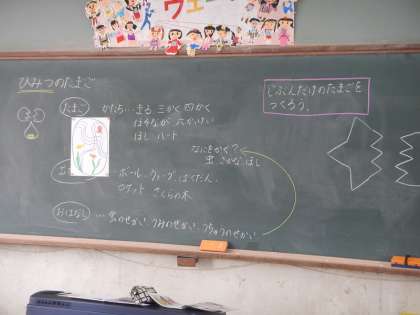 ウェ
ひみつのたまご
たまご かたち… まる 三かく 四かく
ほそなが 六かっけい
ほし ハート
なにをかく？
虫 さかな ほし
ボール
ロケット さくらの木
おはなし … 虫のせかい うみのせかい うちゅうのせかい
じぶんだけのたまごを
つくろう。